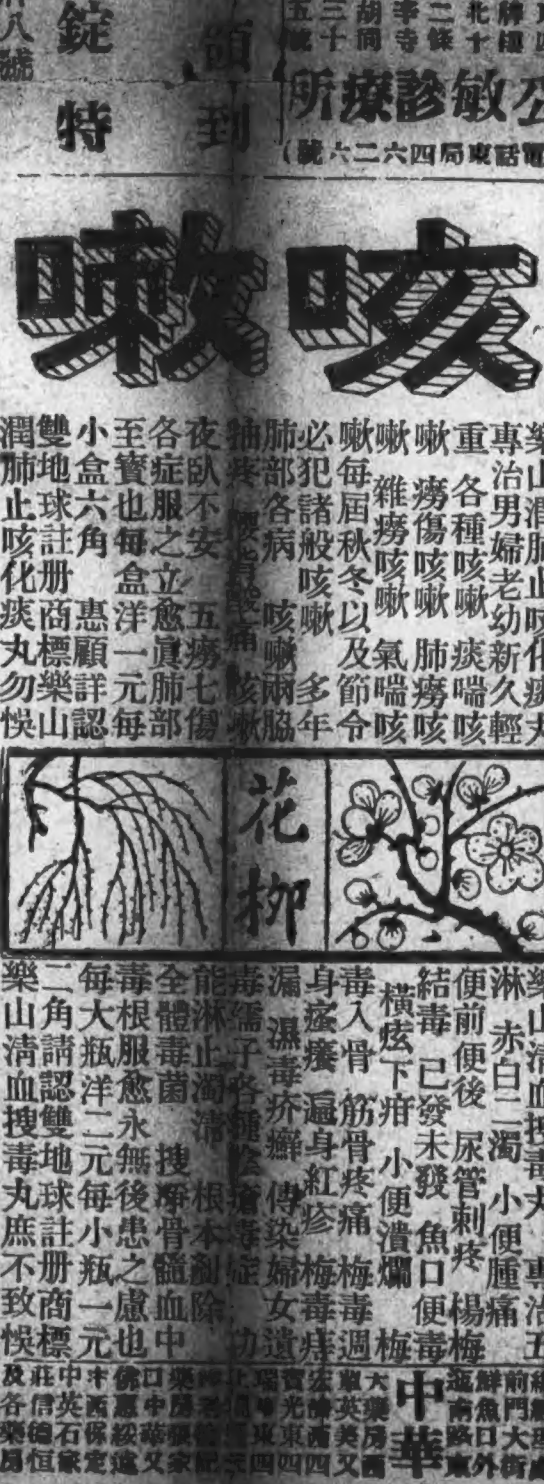 公敏診療所
電話東局四六二六號）
咳嗽
樂山潤肺止咳化痰丸
專治男婦老幼新久輕
重 各種咳嗽 痰喘咳
嗽 癆傷咳嗽 肺癆咳
嗽 雜癆咳嗽 氣喘咳
嗽每屆秋冬以及節令
必犯諸般咳嗽 多年
肺部各病 咳嗽兩脇
抽疼 腰背酸痛 咳嗽
夜臥不安 五癆七傷
各症服之立愈眞肺部
至寶也每盒洋一元每
小盒六角 惠顧詳認
雙地球註册商標樂山
潤肺止咳化痰丸勿悞
花柳
樂山清血搜毒丸 專治五
淋 赤白二濁 小便腫痛
便前便後 尿管刺疼 楊梅
結毒 已發未發 魚口便毒
橫痃下疳 小便潰爛 梅
毒入骨 筋骨疼痛 梅毒週
身瘙癢 遍身紅疹 梅毒痔
漏 濕毒疥癬 傳染婦女遺
毒孺子各種 瘡毒症 功
能淋止濁清 根本剷除
全體毒菌 搜淨骨髓血中
毒根服愈永無後患之慮也
每大瓶洋二元每小瓶一元
二角請認雙地球註册商標
樂山清血搜毒丸庶不致悞
前門大街
鮮魚口外
路南
中華
大藥房西
單英美又
宏濟西四
寶光東四
中英石家
莊信德恒
及各藥房